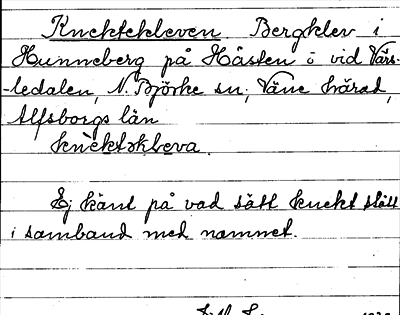 Knektekleven. Bergklev i
Hunneberg på Håsten ö vid Värs-
-ledalen, N. Björke sn, Väne härad,
Älfsborgs län
knèktəkleva.
Ej känt på vad sätt knekt stått
i samband med namnet.